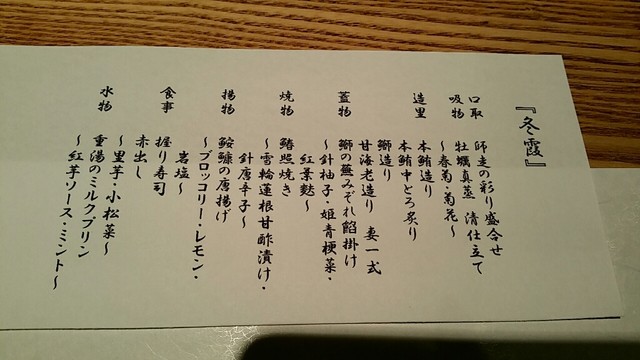 『冬霞』
口取 師走の彩り盛合せ
吸物 牡蠣真蒸 清仕立て
～春菊・菊花～
造里 本鮪造り
本鮪中とろ炙り
鰤造り
甘海老造り 妻一式
蓋物 鰤の蕪みぞれ餡掛け
～針柚子・姫青梗菜・
紅葉麩～
焼物 鰆照焼き
～雪輪蓮根甘酢漬け・
針唐辛子～
揚物 鮟鱇の唐揚げ
～ブロッコリー・レモン・
岩塩～
食事 握り寿司
赤出し
～里芋・小松菜～
水物 重湯のミルクプリン
～紅芋ソース・ミント～